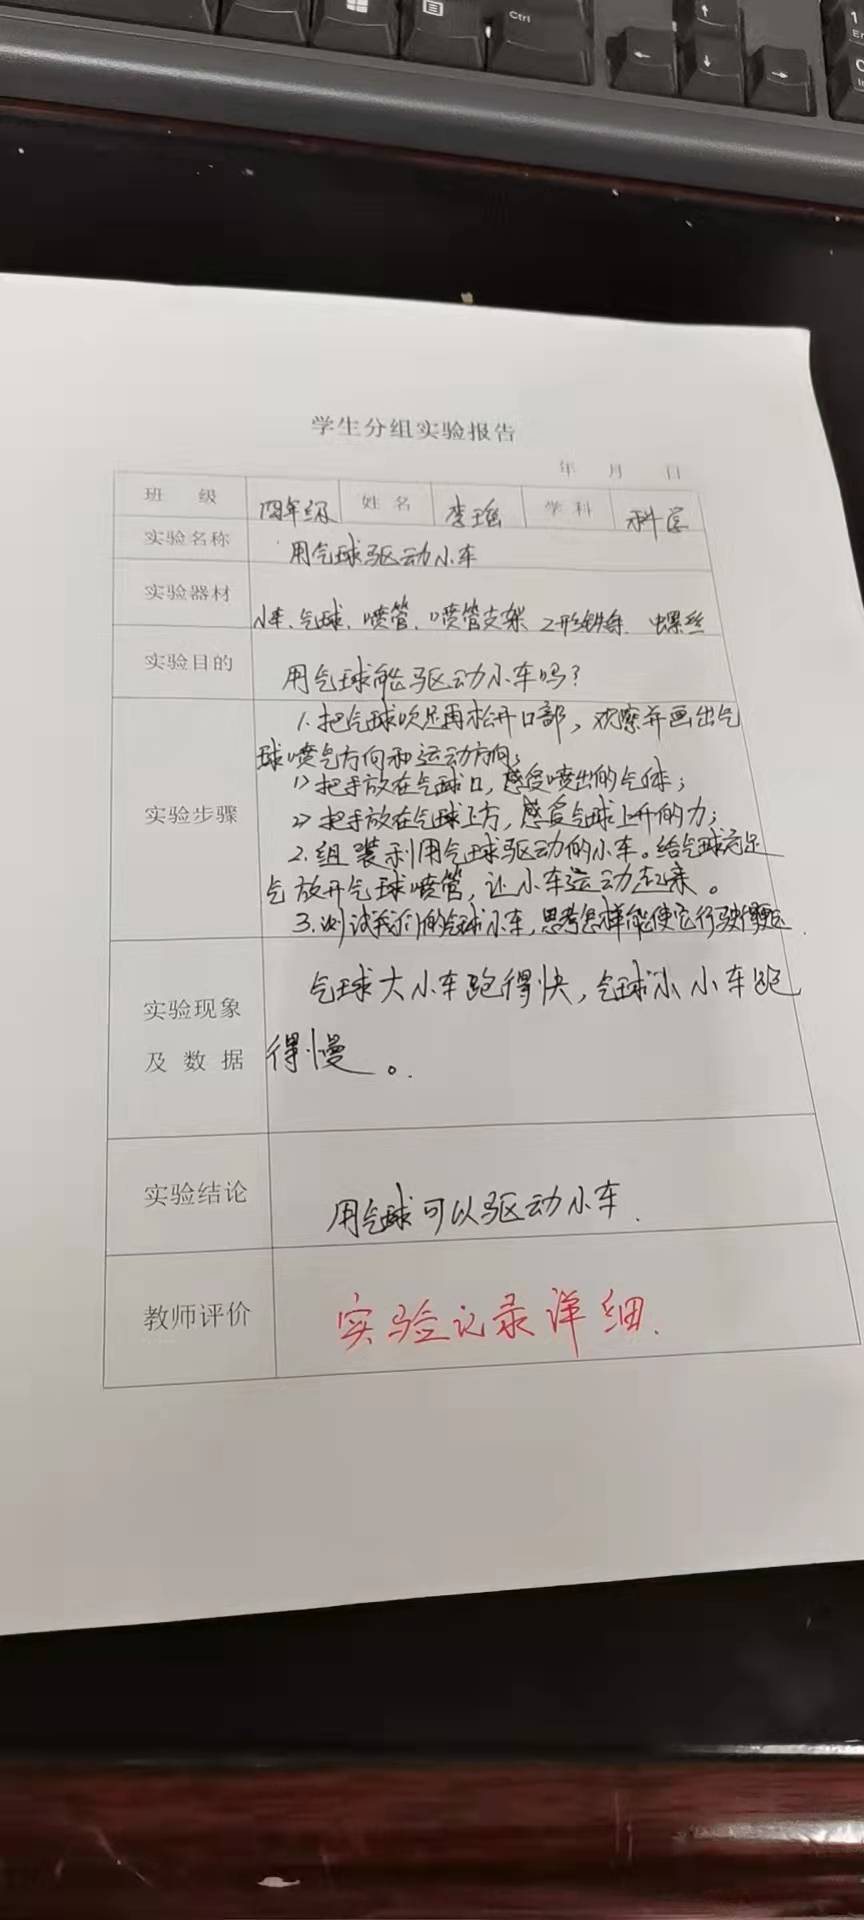 Ctrl
学生分组实验报告
年 月 日
班 级 四年级 姓名 李瑶 学科 科学
实验名称 用气球驱动小车
实验器材 小车、气球、喷管、喷管支架 Z形铁条 螺丝
实验目的 用气球能驱动小车吗?
实验步骤
1.把气球吹足再松开口部,观察并画出气
球喷气方向和运动方向;
1)把手放在气球口,感受喷出的气体;
2)把手放在气球上方,感受气球上升的力;
2.组装利用气球驱动的小车。给气球充足
气放开气球喷管,让小车运动起来。
3.测试我们的气球小车,思考怎样能使它行驶得更远.
实验现象
及数据
气球大小车跑得快,气球小小车跑
得慢。
实验结论 用气球可以驱动小车.
教师评价 实验记录详细.